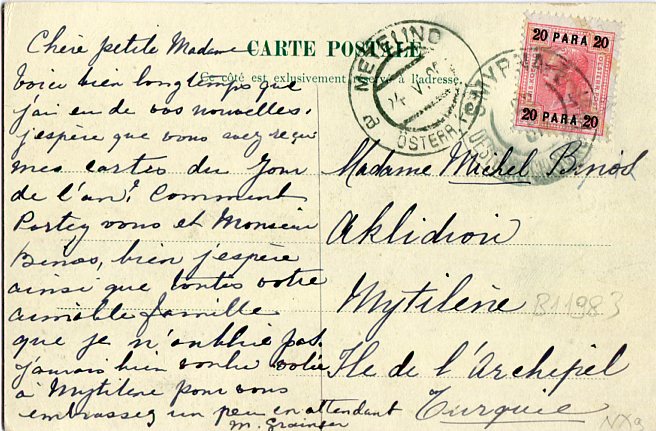 CARTE POSTALE
Ce côté est exlusivement réservé à l'adresse.
Chère petite Madame
Voici bien longtemps que
j'ai eu de vos nouvelles.
j'espère que vous avez reçu
mes cartes du Jour
de l'an? Comment
Portez vous et Monsieur
Binos, bien j'espère
ainsi que toutes votre
aimable famille
que je n'oublie pas.
j'aurais bien voulu
à Mytilène pour vous
embrassez un peu en attendant
M. Grainger
METELINO
24 V
ÖSTERR
SMYRNA
20 PARA 20
20 PARA 20
Madame Michel Binos
Aklidion
Mytilène
811983
Ile de l'Archipel
Turquie